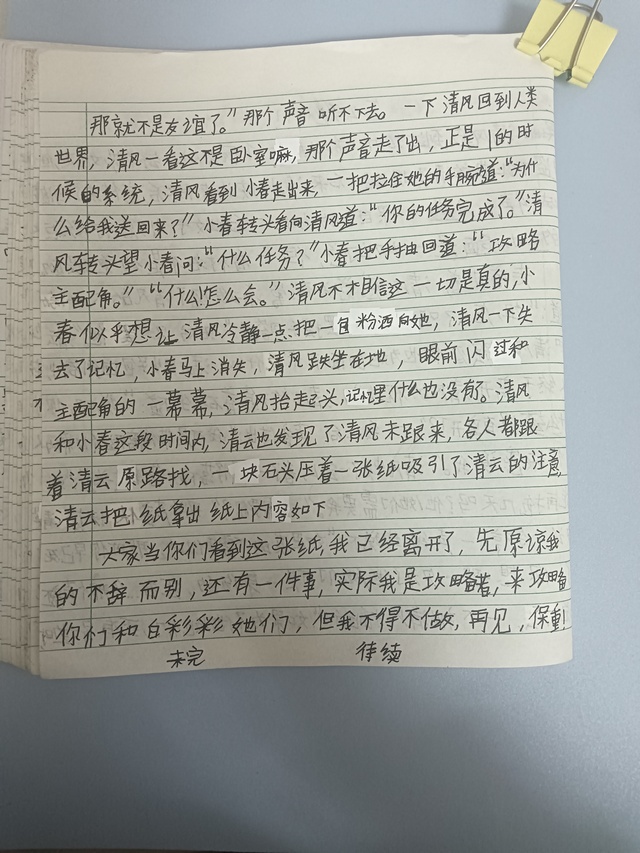 那就不是友谊了。”那个声音听不下去。一下清风回到人类
世界，清风一看这不是卧室嘛，那个声音走了出，正是1的时
候的系统，清风看到小春走出来，一把拉住她的手腕道：“为什
么给我送回来？”小春转头看向清风道：“你的任务完成了。”清
风转头望小春问：“什么任务？”小春把手抽回道：“攻略
主配角。”“什么！怎么会。”清风不相信这一切是真的，小
春似乎想让清风冷静一点把一自粉洒向她，清风一下失
去了记忆，小春马上消失，清风跌坐在地，眼前闪过和
主配角的一幕幕，清风抬走起头，记忆里什么也没有。清风
和小春这段时间内，清云也发现了清风未跟来，各人都跟
着清云原路找，一块石头压着一张纸吸引了清云的注意，
清云把纸拿出纸上内容如下
大家当你们看到这张纸，我已经离开了，先原谅我
的不辞而别，还有一件事，实际我是攻略者，来攻略
你们和白彩彩她们，但我不得不做，再见，保重！
未完 待续